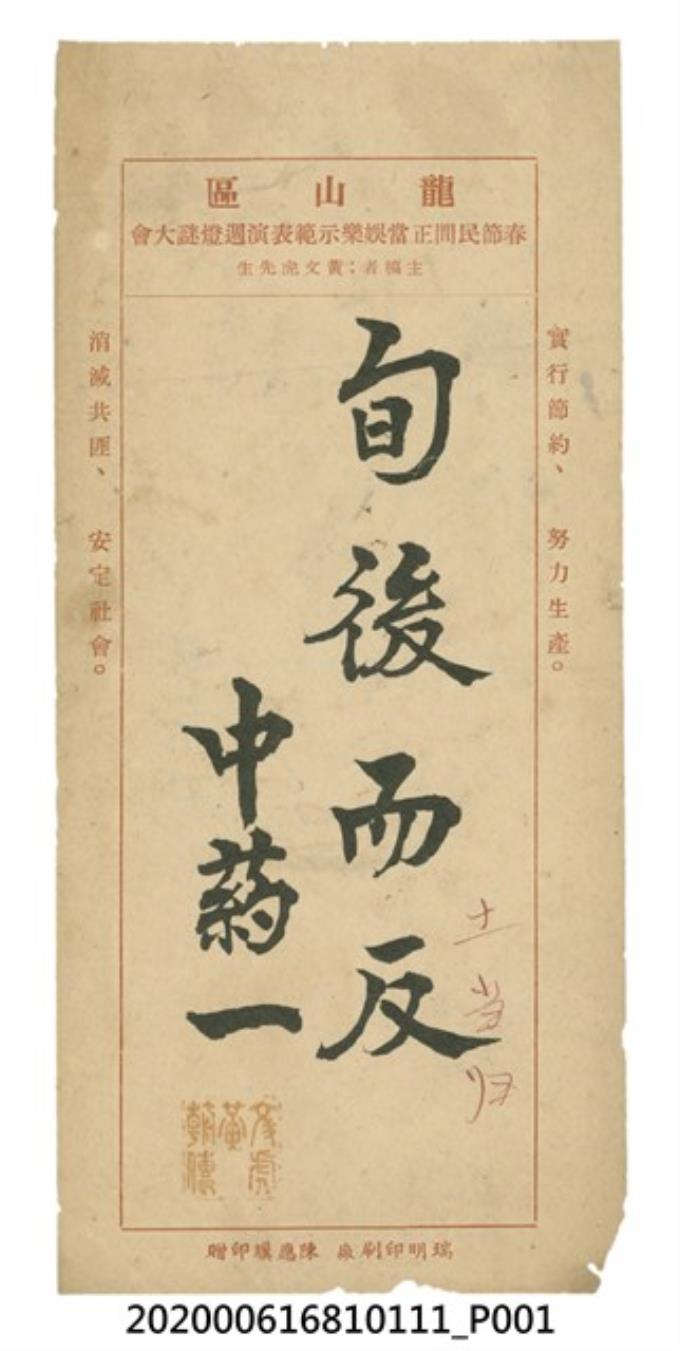 龍山區
春節民間正當娛樂示範表演週燈謎大會
主稿者：黃文虎先生
實行節約、努力生產。
旬後而反
中葯一
土当归
消滅共匪、安定社會。
瑞明印刷廠 陳應驥印贈
202000616810111_P001